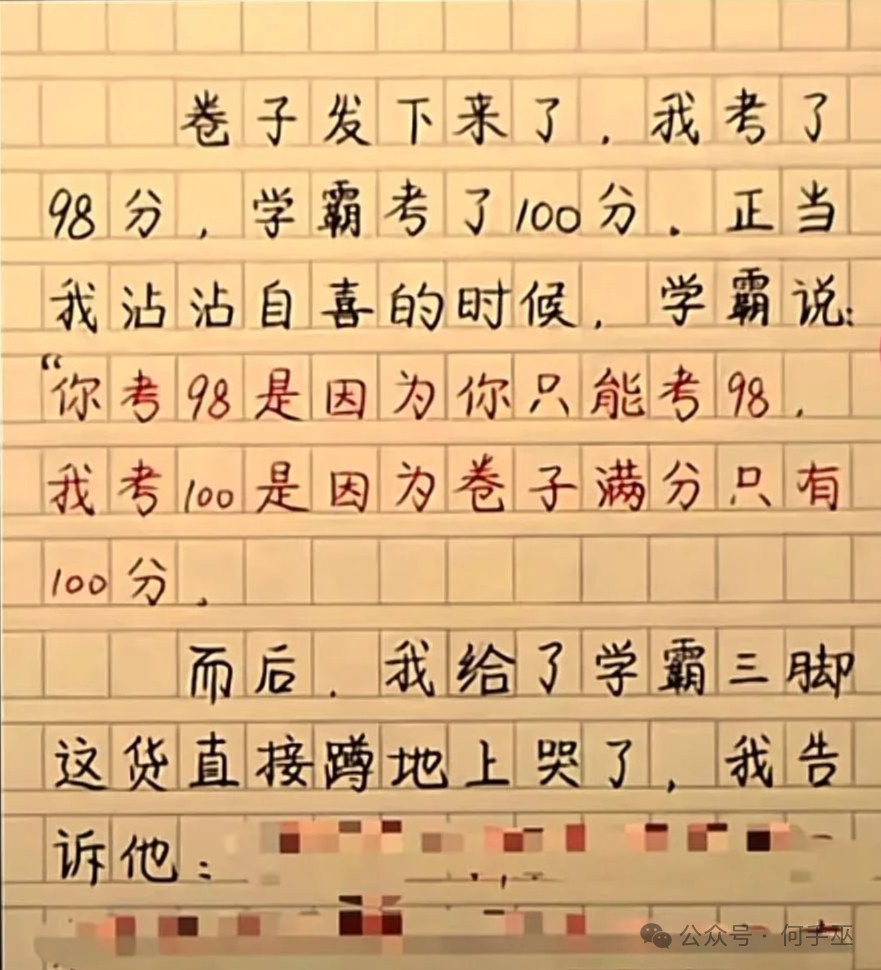 卷子发下来了，我考了
98分，学霸考了100分。正当
我沾沾自喜的时候，学霸说：
“你考98是因为你只能考98，
我考100是因为卷子满分只有
100分。
而后，我给了学霸三脚
这货直接蹲地上哭了，我告
诉他：
公众号·何手巫